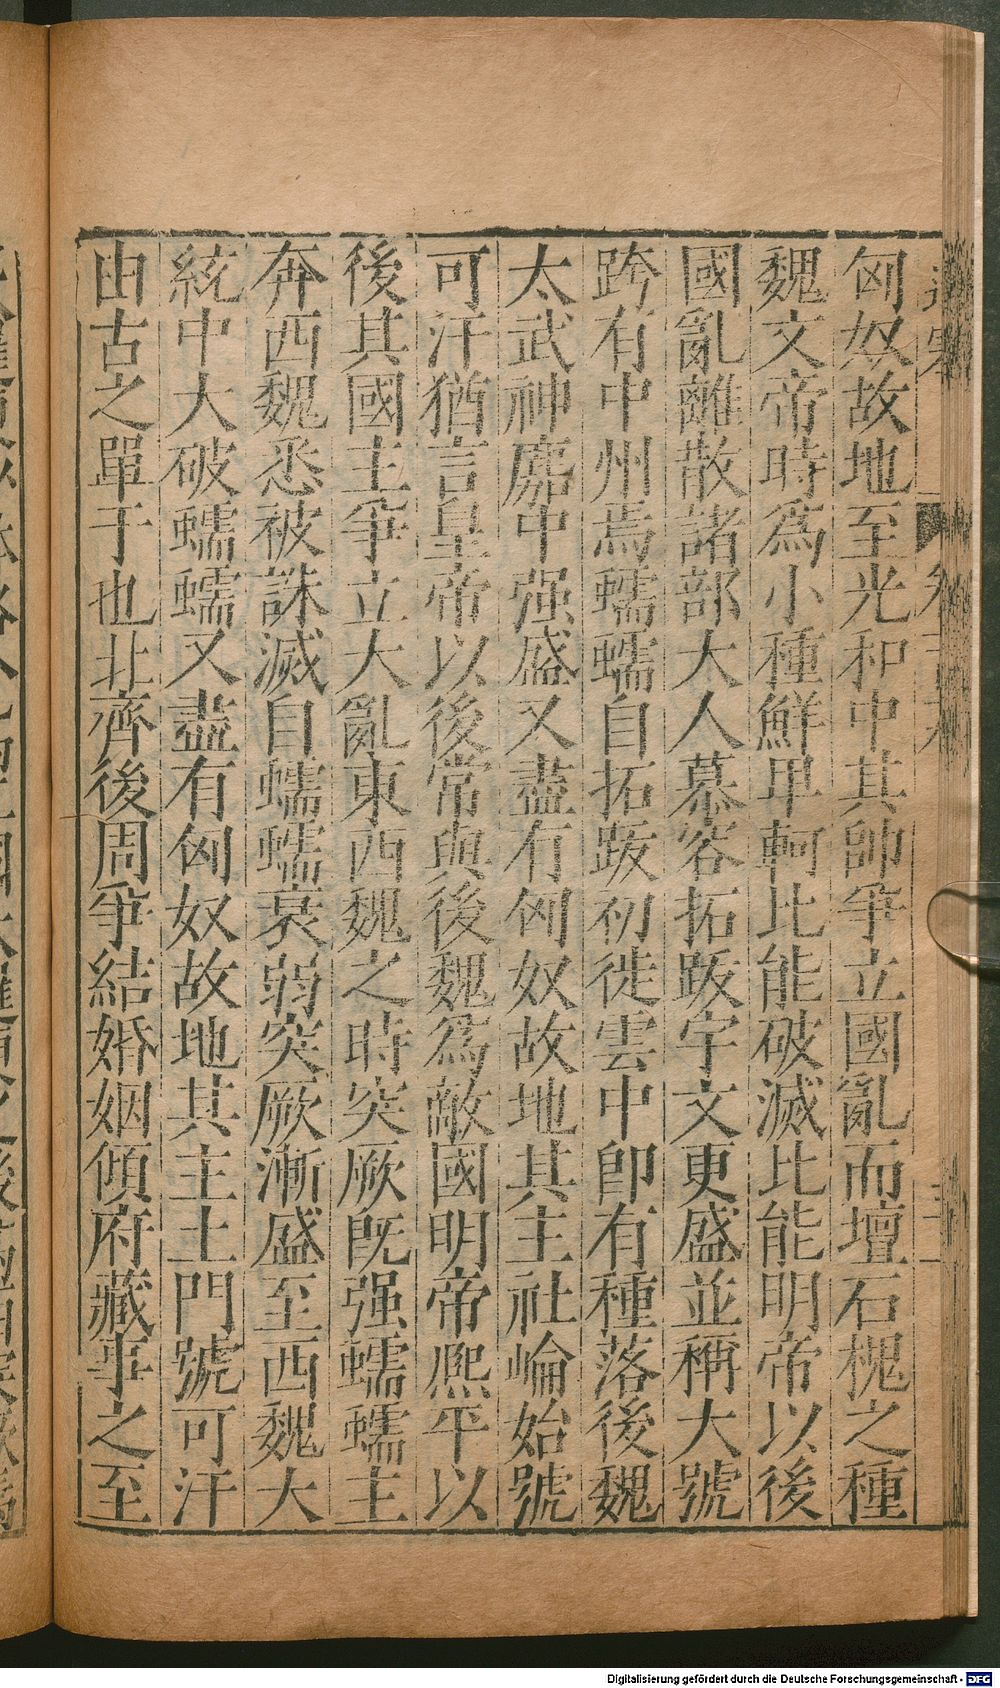 匈奴故地至光和中其帥爭立國亂而壇石槐之種
魏文帝時爲小種鮮卑軻比能破滅比能明帝以後
國亂離散諸部大人慕容拓跋宇文更盛並稱大號
跨有中州焉蠕蠕自拓跋初徙雲中卽有種落後魏
太武神䴥中强盛又盡有匈奴故地其主社崘始號
可汗猶言皇帝以後常與後魏爲敵國明帝熈平以
後其國主爭立大亂東西魏之時突厥旣强蠕蠕主
奔西魏悉被誅滅自蠕蠕衰弱突厥漸盛至西魏大
統中大破蠕蠕又盡有匈奴故地其主土門號可汗
由古之單于也北齊後周爭結婚姻傾府藏事之至
Digitalisierung gefördert durch die Deutsche Forschungsgemeinschaft - DFG